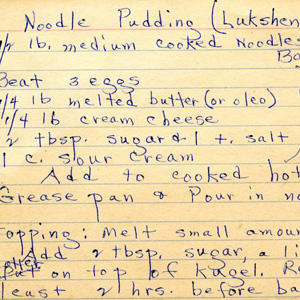 Noodle Pudding (Lukshen
1/2 lb. medium cooked Noodles
Beat 3 eggs
1/4 lb melted butter (or oleo)
1/4 lb cream cheese
2 tbsp. sugar & 1 t. salt
1 c. sour cream
Add to cooked hot
Grease pan & Pour in no
opping: Melt small amoun
Add 2 tbsp. sugar, a li
Put on top of kugel. R
least 2 hrs. before ba